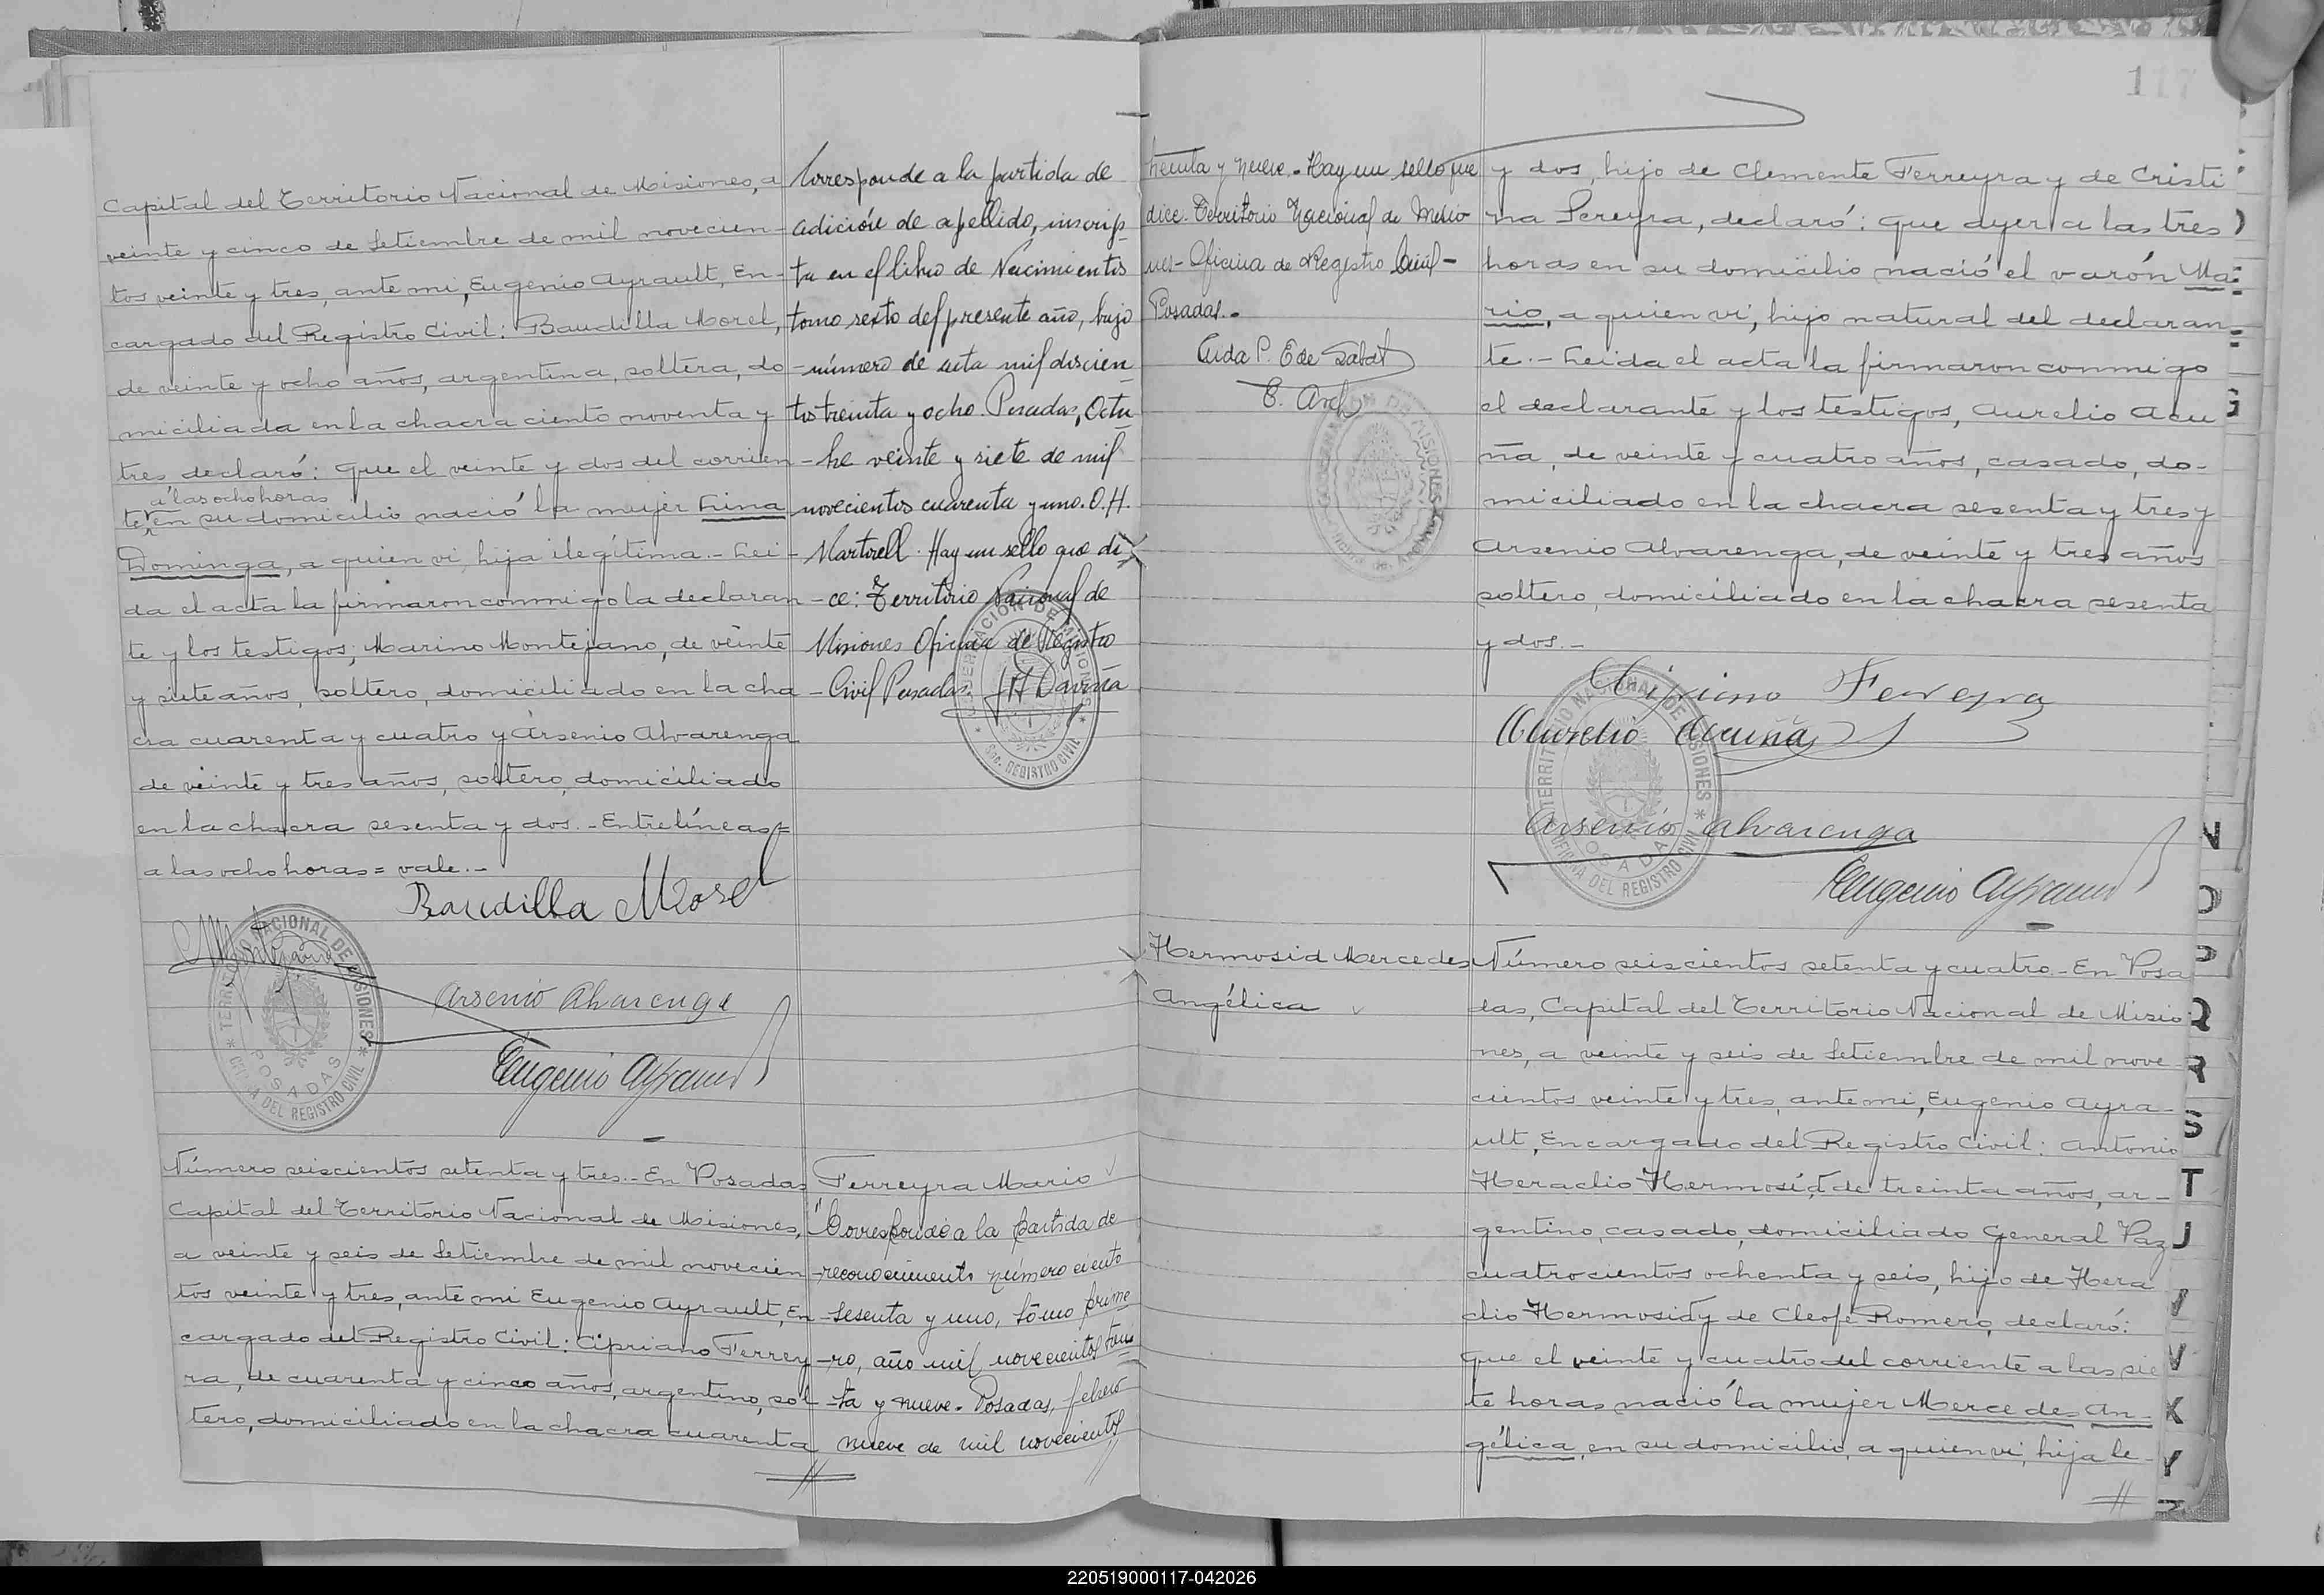 Capital del Territorio Nacional de Misiones, a
veinte y cinco de Setiembre de mil novecien-
tos veinte y tres, ante mi, Eugenio Ayrault, En-
cargado del Registro Civil: Baudilla Morel,
de veinte y ocho años, argentina, soltera, do-
miciliada en la chacra ciento noventa y
tres declaró: que el veinte y dos del corrien-
a las ocho horas
te, en su domicilio nació la mujer Lina
Dominga, a quien vi, hija ilegítima.- Lei-
da el acta la firmaron conmigo la declaran-
te y los testigos, Marino Montejano, de veinte
y siete años, soltero, domiciliado en la cha-
cra cuarenta y cuatro y Arsenio Alvarenga
de veinte y tres años, soltero, domiciliado
en la chacra sesenta y dos.- Entre líneas=
a las ocho horas = vale.-
Baudilla Morel
MMontejano
Arsenio Alvarenga
Eugenio Ayrault
TERRITORIO NACIONAL DE MISIONES
POSADAS
OFICINA DEL REGISTRO CIVIL
Corresponde a la partida de
adición de apellido, inscrip-
ta en el libro de Nacimientos
tomo sexto del presente año, bajo
número de acta mil doscien
tos treinta y ocho. Posadas, Octu
bre veinte y siete de mil
novecientos cuarenta y uno. O.H.
Martorell. Hay un sello que di-
ce: Territorio Nacional de
Misiones Oficina de Registro
Civil Posadas.
GOBERNACION DE MISIONES
Sec. REGISTRO CIVIL
Número seiscientos setenta y tres.- En Posadas
Capital del Territorio Nacional de Misiones,
a veinte y seis de Setiembre de mil novecien-
tos veinte y tres, ante mi Eugenio Ayrault, En-
cargado del Registro Civil: Cipriano Ferrey-
ra, de cuarenta y cinco años, argentino, sol-
tero, domiciliado en la chacra cuarenta
Ferreyra Mario
Corresponde a la partida de
reconocimiento número ciento
sesenta y uno, tomo prime
ro, año mil novecientos trein
ta y nueve. Posadas, febrero
nueve de mil novecientos
treinta y nueve.- Hay un sello que
dice: Territorio Nacional de Misio
nes- Oficina de Registro Civil-
Posadas.-
P. E de Sabat
117
y dos, hijo de Clemente Ferreyra y de Cristi
na Pereyra, declaró: que ayer a las tres
horas en su domicilio nació el varón Ma-
rio, a quien vi, hijo natural del declaran-
te.- Leida el acta la firmaron conmigo
el declarante y los testigos, Aurelio Acu
ña, de veinte y cuatro años, casado, do-
miciliado en la chacra sesenta y tres y
Arsenio Alvarenga, de veinte y tres años
soltero, domiciliado en la chacra sesenta
y dos.-
Cipriano Ferreyra
Aurelio Acuña
Arsenio Alvarenga
Eugenio Ayrault
TERRITORIO NACIONAL DE MISIONES
POSADAS
OFICINA DEL REGISTRO CIVIL
Hermosid Mercedes
Angélica
Número seiscientos setenta y cuatro.- En Posa
das, Capital del Territorio Nacional de Misio-
nes, a veinte y seis de Setiembre de mil nove-
cientos veinte y tres, ante mi, Eugenio Ayra-
ult, Encargado del Registro Civil: Antonio
Heraclio Hermosid, de treinta años, ar-
gentino, casado, domiciliado General Paz
cuatrocientos ochenta y seis, hijo de Hera
clio Hermosid y de Cleofe Romero, declaró:
que el veinte y cuatro del corriente a las sie
te horas nació la mujer Mercedes An-
gélica, en su domicilio, a quien vi, hija le-
N
O
P
Q
R
S
T
J
V
K
Y
220519000117-042026